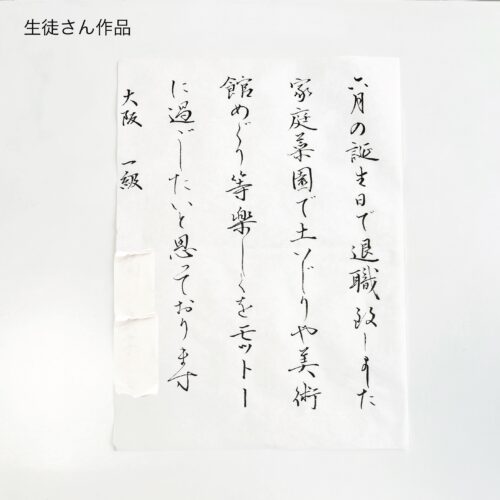 生徒さん作品
六月の誕生日で退職致しました
家庭菜園で土いじりや美術
館めぐり等楽しくをモットー
に過ごしたいと思っております
大阪 一級